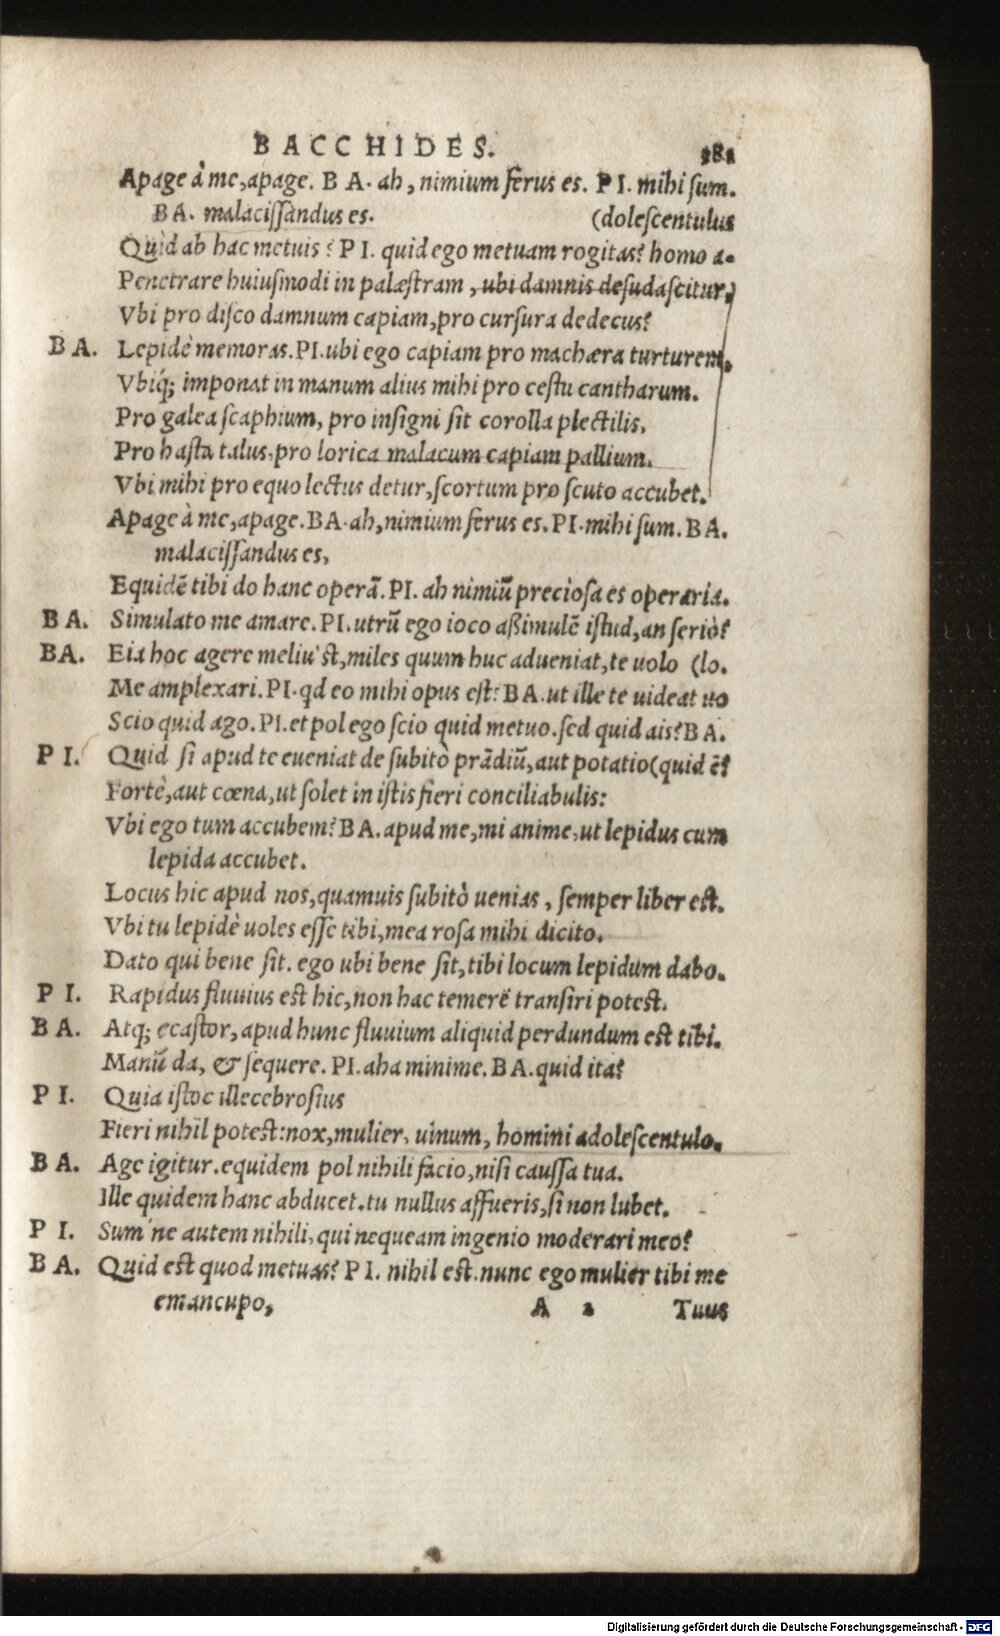 BACCHIDES. 181
Apage à me, apage. BA. ah, nimium ferus es. PI. mihi sum.
BA. malacissandus es. (dolescentulus
Quid ab hac metuis? PI. quid ego metuam rogitas? homo a-
Penetrare huiusmodi in palæstram, ubi damnis desudascitur,
Vbi pro disco damnum capiam, pro cursura dedecus?
BA. Lepidè memoras. PI. ubi ego capiam pro machæra turturem,
Vbiq; imponat in manum alius mihi pro cestu cantharum.
Pro galea scaphium, pro insigni sit corolla plectilis,
Pro hasta talus, pro lorica malacum capiam pallium.
Vbi mihi pro equo lectus detur, scortum pro scuto accubet.
Apage à me, apage. BA. ah, nimium ferus es. PI. mihi sum. BA.
malacissandus es,
Equidē tibi do hanc operā. PI. ah nimiū preciosa es operaria.
BA. Simulato me amare. PI. utrū ego ioco aßimulē istud, an seriò?
BA. Eia hoc agere meliu'st, miles quum huc adueniat, te uolo (lo.
Me amplexari. PI. qd eo mihi opus est? BA. ut ille te uideat uo
Scio quid ago. PI. et pol ego scio quid metuo. sed quid ais? BA.
PI. Quid si apud te eueniat de subitò prādiū, aut potatio (quid ē?
Fortè, aut cœna, ut solet in istis fieri conciliabulis:
Vbi ego tum accubem? BA. apud me, mi anime, ut lepidus cum
lepida accubet.
Locus hic apud nos, quamuis subitò uenias, semper liber est.
Vbi tu lepidè uoles esse tibi, mea rosa mihi dicito.
Dato qui bene sit. ego ubi bene sit, tibi locum lepidum dabo.
PI. Rapidus fluuius est hic, non hac temerè transiri potest.
BA. Atq; ecastor, apud hunc fluuium aliquid perdundum est tibi.
Manū da, & sequere. PI. aha minime. BA. quid ita?
PI. Quia istoc illecebrosius
Fieri nihil potest: nox, mulier, uinum, homini adolescentulo.
BA. Age igitur. equidem pol nihili facio, nisi caussa tua.
Ille quidem hanc abducet. tu nullus affueris, si non lubet.
PI. Sum'ne autem nihili, qui nequeam ingenio moderari meo?
BA. Quid est quod metuas? PI. nihil est. nunc ego mulier tibi me
emancupo, A 2 Tuus
Digitalisierung gefördert durch die Deutsche Forschungsgemeinschaft - DFG